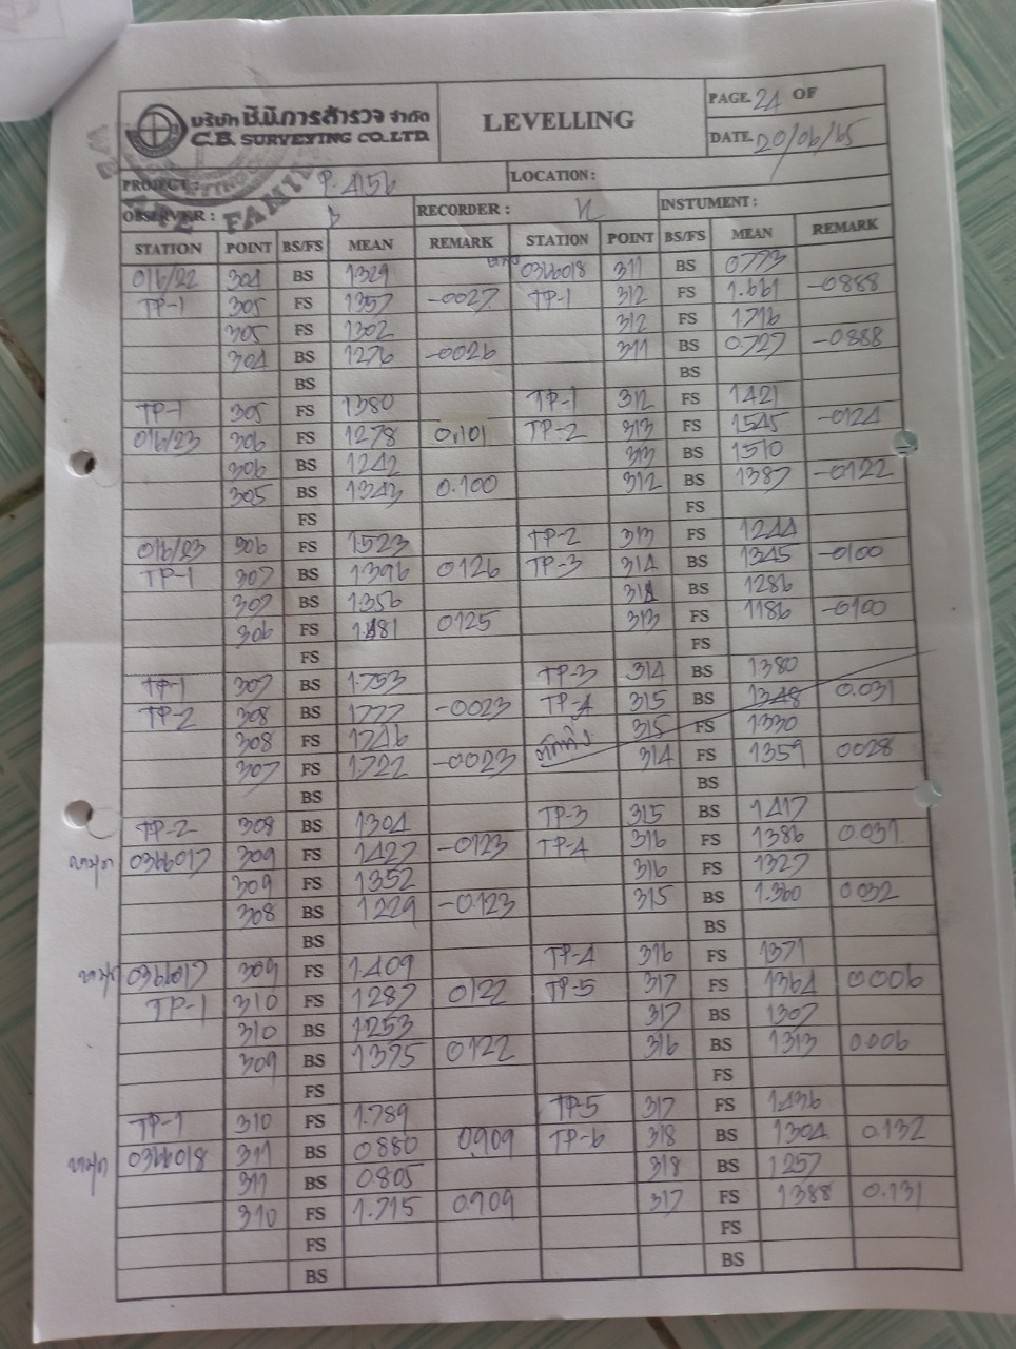 บริษัท ซี.บี.การสำรวจ จำกัด
C.B. SURVEYING CO.,LTD.
LEVELLING
PAGE 24 OF
DATE. 20/06/65
PROJECT :
LOCATION :
OBSERVER :
RECORDER :
INSTUMENT :
STATION POINT BS/FS MEAN REMARK STATION POINT BS/FS MEAN REMARK
016/22 304 BS 1329 311 BS 0773
TP-1 305 FS 1357 -0027 TP-1 312 FS 1.661 -0888
305 FS 1302 312 FS 1716
304 BS 1276 -0026 311 BS 0.727 -0888
BS BS
TP-1 305 FS 1380 TP-1 312 FS 1421
016/23 306 FS 1278 0.101 TP-2 313 FS 1545 -0124
306 BS 1242 313 BS 1510
305 BS 1343 0.100 312 BS 1387 -0122
FS FS
016/23 306 FS 1523 TP-2 313 FS 1244
TP-1 307 BS 1396 0126 TP-3 314 BS 1345 -0100
307 BS 1356 314 BS 1286
306 FS 1.481 0125 313 FS 1186 -0100
FS FS
TP-1 307 BS 1.753 TP-3 314 BS 1380
TP-2 308 BS 1777 -0023 TP-4 315 BS 1348 0.031
308 FS 1746 315 FS 1330
307 FS 1.722 -0023 314 FS 1359 0028
BS BS
TP-2 308 BS 1304 TP-3 315 BS 1417
309 FS 1427 -0123 TP-4 316 FS 1386 0.031
309 FS 1352 316 FS 1327
308 BS 1229 -0.123 315 BS 1.360 0032
BS BS
309 FS 1.409 TP-4 316 FS 1371
TP-1 310 FS 1287 0122 TP-5 317 FS 1364 0006
310 BS 1253 317 BS 1307
309 BS 1375 0122 316 BS 1313 0.006
FS FS
TP-1 310 FS 1.789 TP-5 317 FS 1436
311 BS 0880 0.909 TP-6 318 BS 1304 0.132
311 BS 0.805 318 BS 1257
310 FS 1.715 0.909 317 FS 1388 0.131
FS FS
BS BS